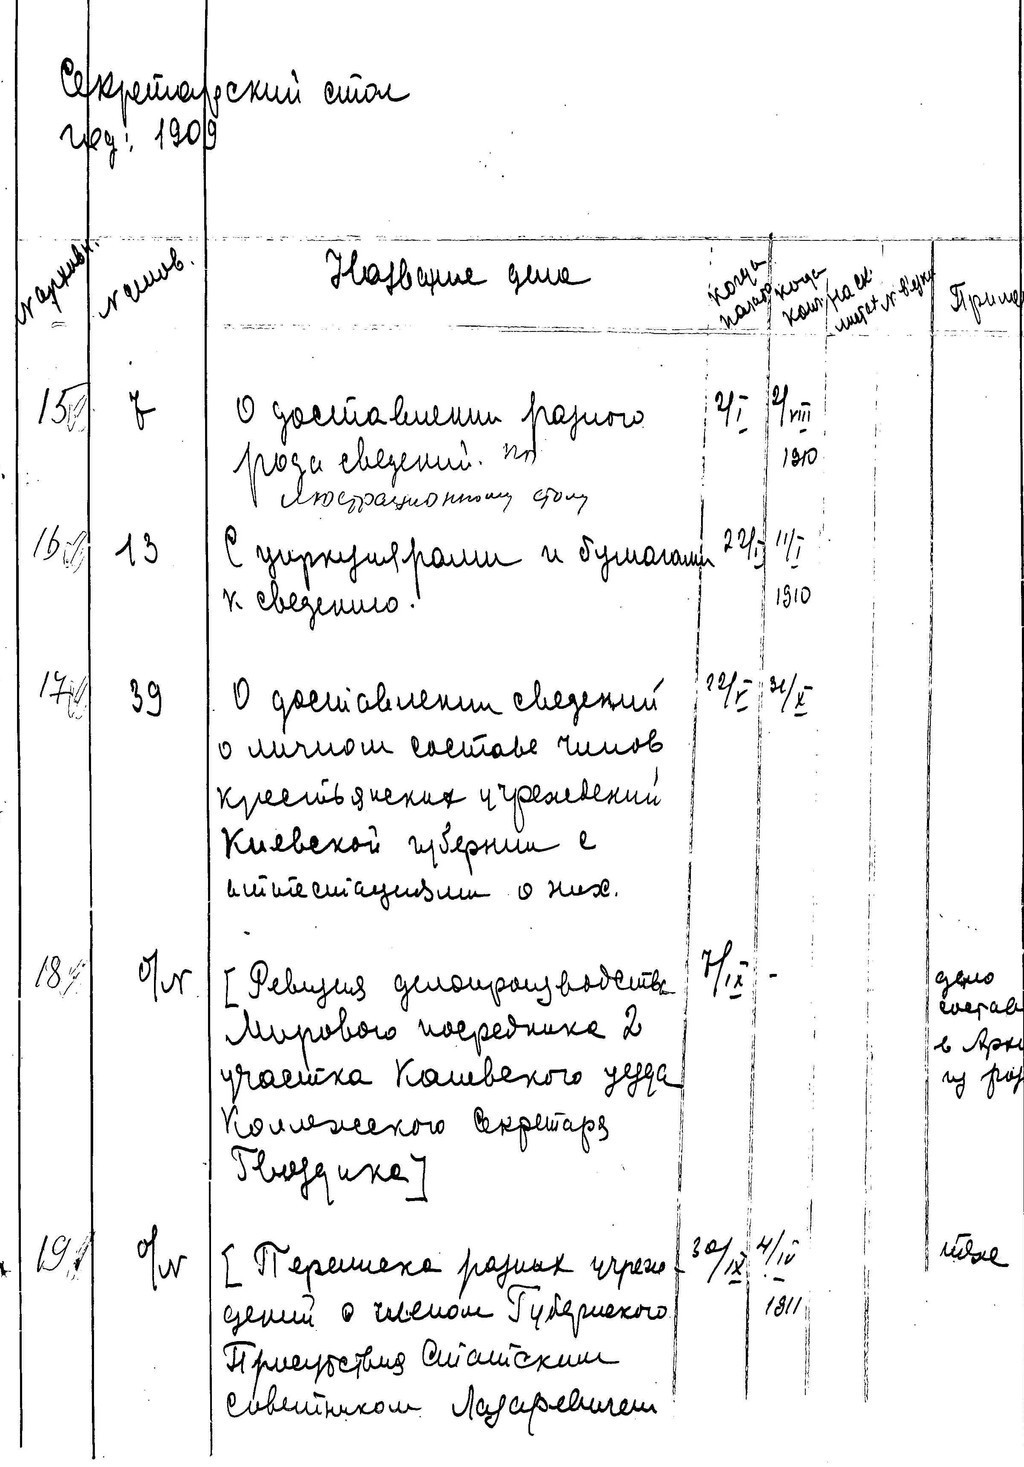 Секретарский стол
год: 1909
N архивн. N столов. Название дела когда начато когда конч. на ск. листах N в'язки Приме
15 7 О доставлении разного 2/I 2/VIII
рода сведений. по 1910
люстрационному столу
16 13 С циркулярами и бумагами 22/I 11/I
к сведению. 1910
17 39 О доставлении сведений 22/V 31/X
о личном составе чинов
крестьянских учреждений
Киевской губернии с
аттестациями о них.
18 б/N [Ревизия делопроизводства 7/IX - дело
Мирового посредника 2 состав
участка Каневского уезда в Архи
Коллежского Секретаря из роз
Гвоздика]
19 б/N [Переписка разных учреж- 30/IX 4/IV тоже
дений о членом Губернского 1911
Присутствия Статским
Советником Лазаревичем